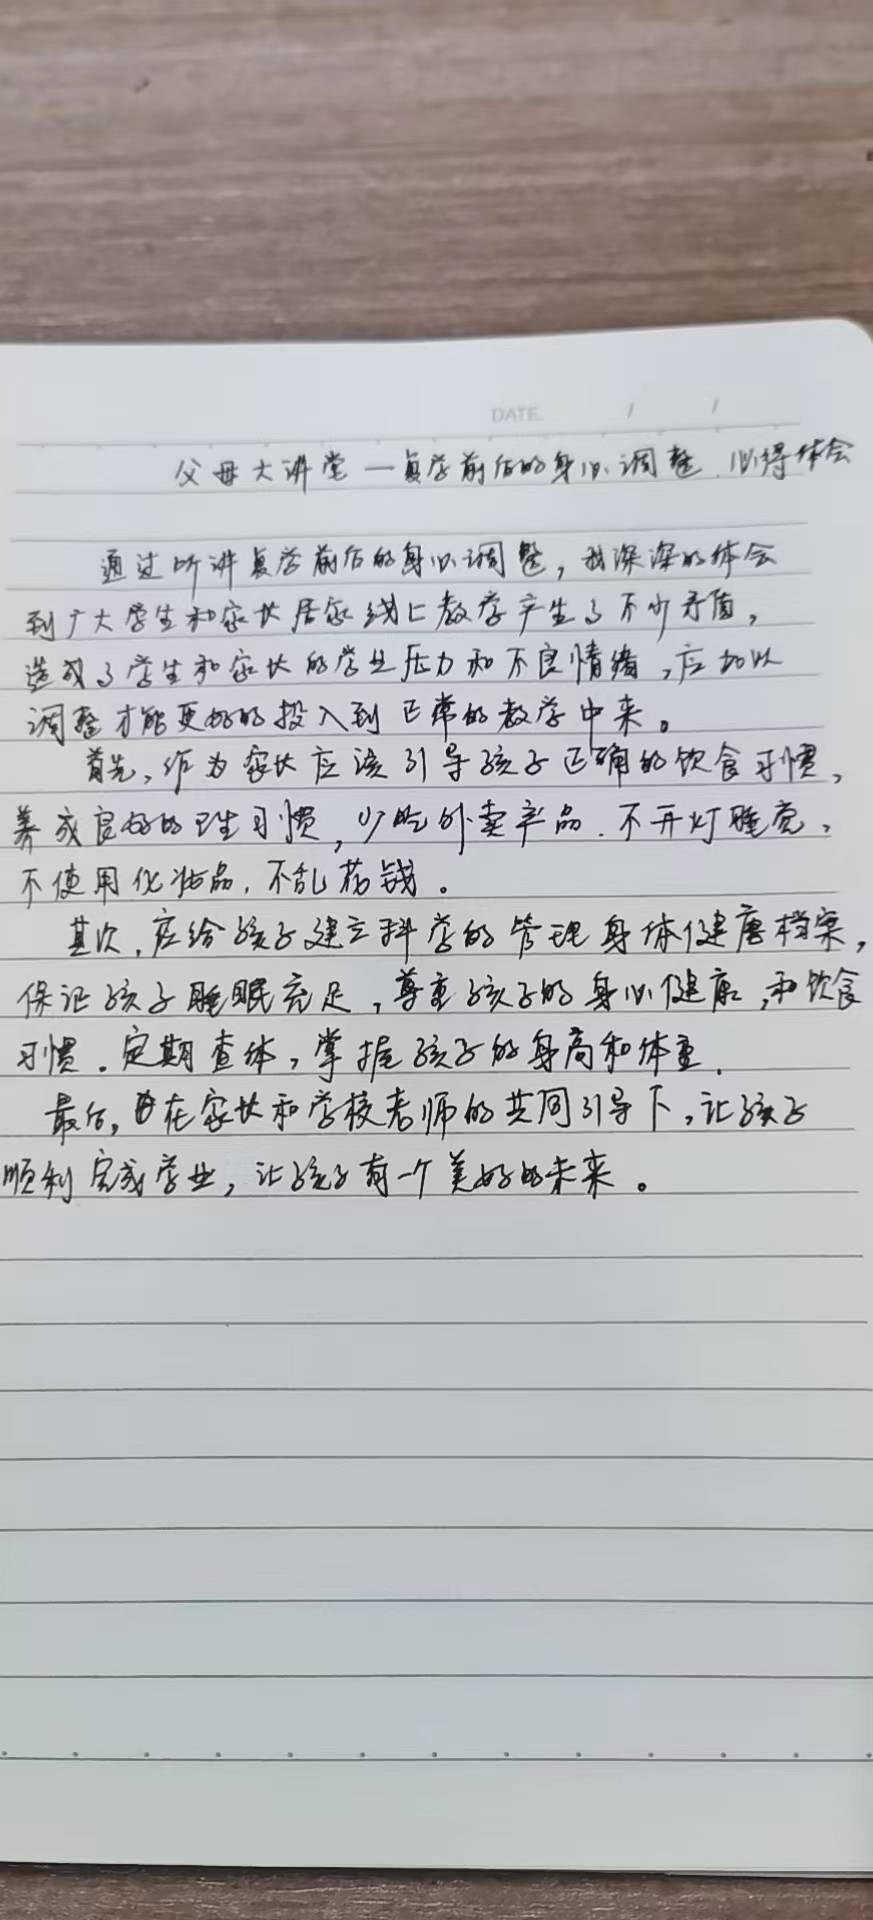 DATE. / /
父母大讲堂—复学前后的身心调整.心得体会
通过听讲复学前后的身心调整，我深深的体会
到广大学生和家长居家线上教学产生了不少矛盾，
造成了学生和家长的学业压力和不良情绪，应加以
调整才能更好的投入到正常的教学中来。
首先，作为家长应该引导孩子正确的饮食习惯，
养成良好的卫生习惯，少吃外卖产品.不开灯睡觉，
不使用化妆品.不乱花钱。
其次.应给孩子建立科学的管理身体健康档案，
保证孩子睡眠充足，尊重孩子的身心健康，和饮食
习惯.定期查体，掌握孩子的身高和体重.
最后，在家长和学校老师的共同引导下，让孩子
顺利完成学业，让孩子有一个美好的未来。